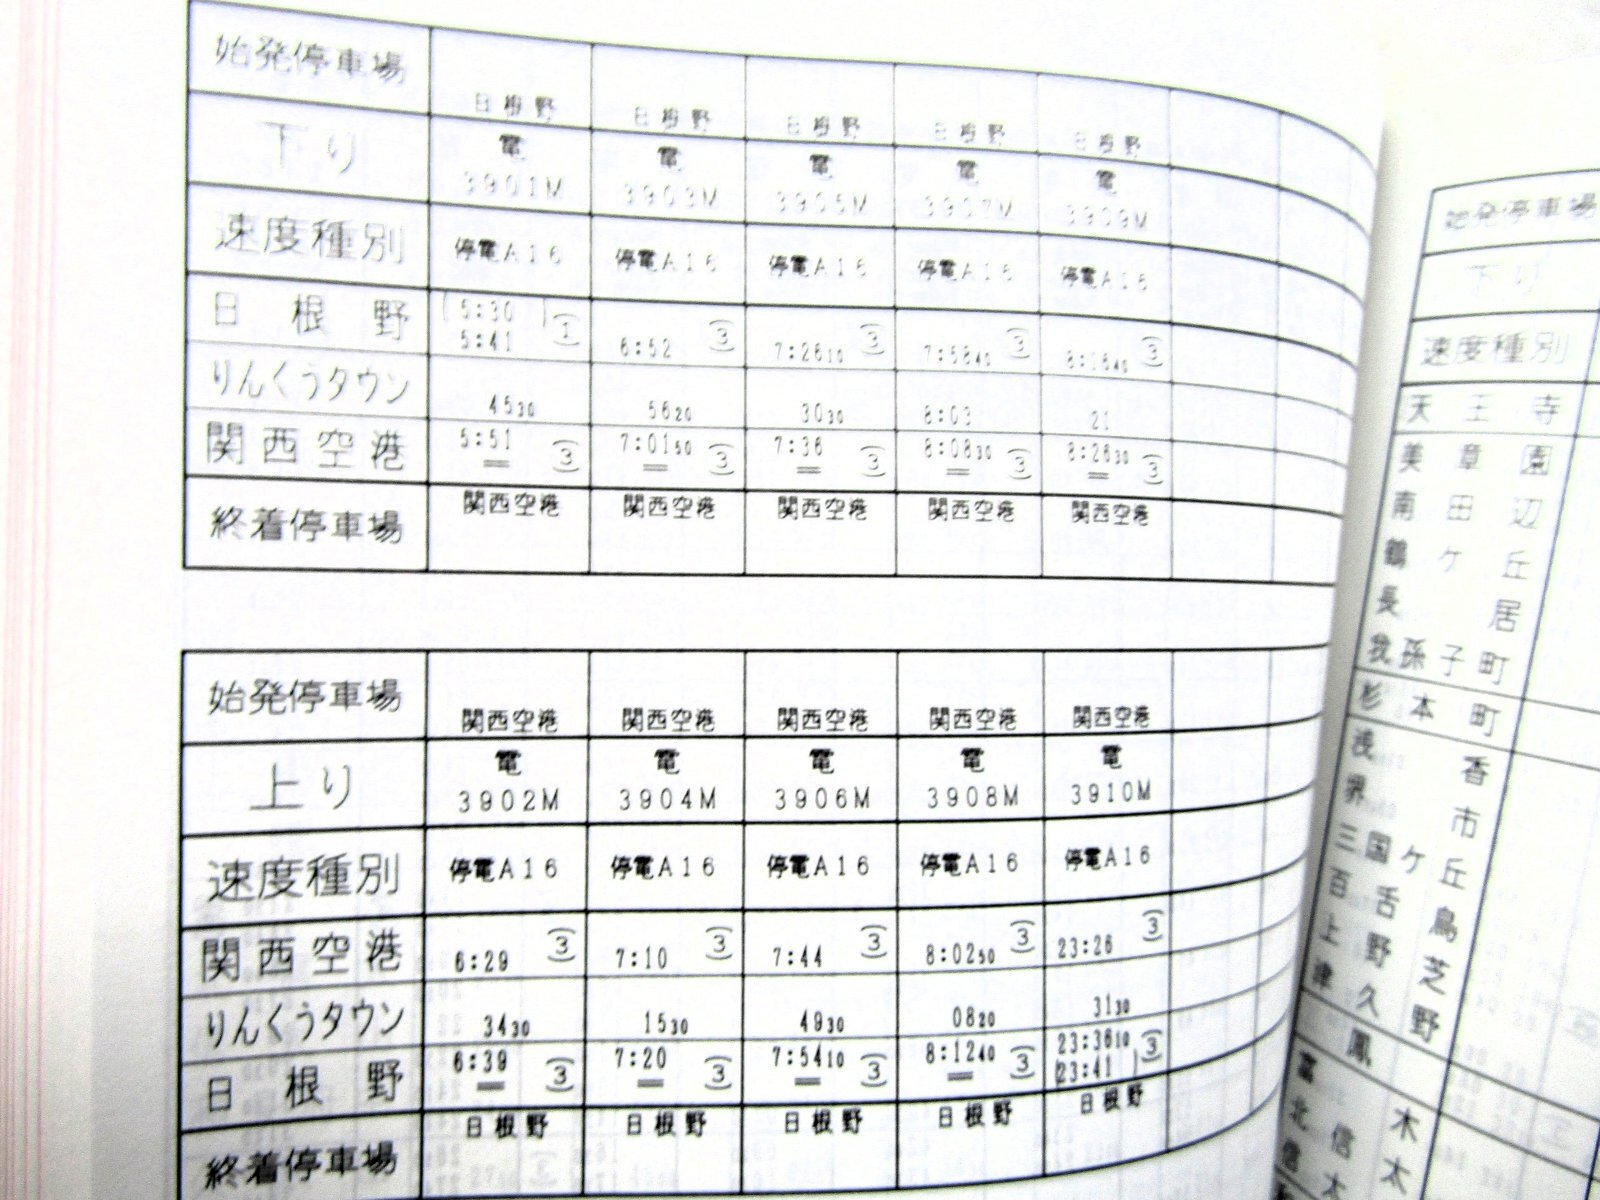 始発停車場 日根野 日根野 日根野 日根野 日根野
下り 電 電 電 電 電
3901M 3903M 3905M 3907M 3909M
速度種別 停電A16 停電A16 停電A16 停電A16 停電A16
日根野 (5:30)
5:41 ① 6:52 ③ 7:2610 ③ 7:5840 ③ 8:1640 ③
りんくうタウン 4530 5620 3030 8:03 21
関西空港 5:51 ③ 7:0150 ③ 7:36 ③ 8:0830 ③ 8:2630 ③
終着停車場 関西空港 関西空港 関西空港 関西空港 関西空港
始発停車場 関西空港 関西空港 関西空港 関西空港 関西空港
上り 電 電 電 電 電
3902M 3904M 3906M 3908M 3910M
速度種別 停電A16 停電A16 停電A16 停電A16 停電A16
関西空港 6:29 ③ 7:10 ③ 7:44 ③ 8:0250 ③ 23:26 ③
りんくうタウン 3430 1530 4930 0820 3130
日根野 6:39 ③ 7:20 ③ 7:5410 ③ 8:1240 ③ 23:3610 ③
(23:41)
終着停車場 日根野 日根野 日根野 日根野 日根野
始発停車場
下り
速度種別
天王寺
美章園
南田辺
鶴ケ丘
長居
我孫子町
杉本町
浅香
堺市
三国ケ丘
百舌鳥
上野芝
津久野
鳳
富木
北信太
信太